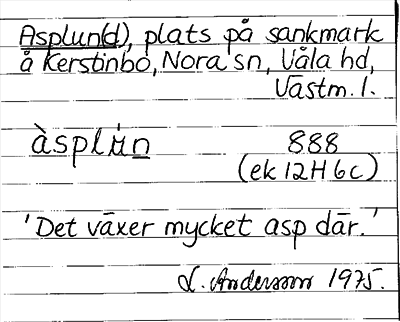 Asplun(d), plats på sankmark
å Kerstinbo, Nora sn, Våla hd,
Västm. l.
àsplu̇n 888
(ek 12H 6c)
'Det växer mycket asp där.'
L. Anderson 1975.